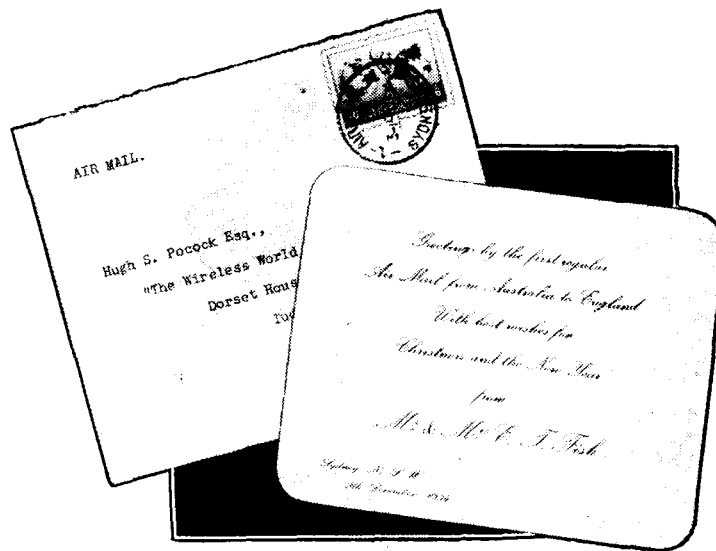 AIR MAIL.
Hugh S. Pocock Esq.,
"The Wireless World
Dorset Hous
Tud
SYDNEY
Greetings by the first regular
Air Mail from Australia to England
With best wishes for
Christmas and the New Year
from
Mr. & Mrs. E. T. Fisk
Sydney N. S. W.
December 1934